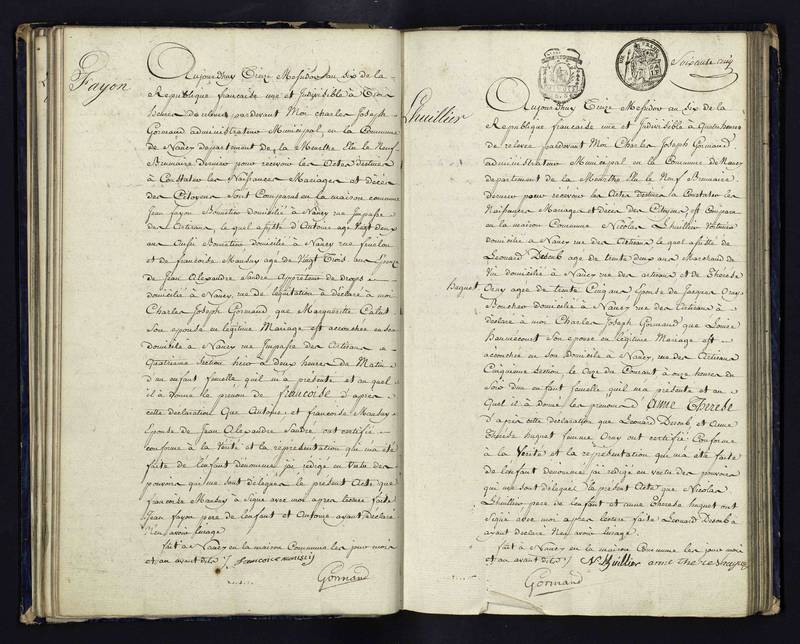 Fayon
Aujourdhuy Treize Messidor an six de la
République française une et Indivisible à
heures de relevée pardevant Moi Charles Joseph
Gormand administrateur Municipal en la Commune
de Nancy departement de la Meurthe Elu le Neuf
Brumaire dernier pour recevoir les Actes destinés
à Constater les Naissances Mariages et Décès
des Citoyens sont Comparus en la maison commune
Jean fayon domicilié à Nancy rue Impasse
des Artisans, le quel assisté d'Antoine age Vingt deux
ans aussi domicilié à Nancy rue fenelon
et de francoise Mausuy age de Vingt Trois ans Epouse
de Jean Alexandre Sandré de draps
domicilié à Nancy, rue de à déclaré à moi
Charles Joseph Gormand que Marguerite Calot
Son epouse en légitime Mariage est accouchée en son
domicile à Nancy rue Impasse des Artisans
quatrieme section hier à deux heures du Matin
d'un enfant femelle quil m'a présenté et au quel
il a donné le prenom de francoise d'apres
cette déclaration que Antoine et francoise Mausuy
Epouse de Jean Alexandre Sandré ont certifié
conforme à la Vérité et la représentation qui m'a été
faite de lenfant denommé j'ai rédigé en Vertu des
pouvoirs qui me sont délégués le présent Acte que
francoise Mausuy à Signé avec moi apres lecture faite
Jean fayon pere de lenfant et Antoine ayant déclaré
n'en avoir lusage
fait à Nancy en la maison Commune les jour mois
et an avant dits / francoise mausuy
Gormand
Soixante
Lhuillier
Aujourdhuy Treize Messidor an six de la
République francaise une et Indivisible à quatre heures
de relevée pardevant Moi Charles Joseph Gormand
administrateur Municipal en la Commune de Nancy
departement de la Meurthe Elu le Neuf Brumaire
dernier pour recevoir les Actes destinés à Constater les
Naissances Mariages et décès des Citoyens, est Comparu
en la maison Commune Nicolas Lhuillier
domicilié à Nancy rue des Artisans le quel assisté de
Léonard Desoub age de trente deux ans Marchand de
Vin domicilié à Nancy rue des artisans et de Therese
huguet Oray agée de trente Cinq ans Epouse de Jacques Oray
Boucher domicilié à Nancy rue des Artisans à
déclaré à moi Charles Joseph Gormand que Louise
Son epouse en légitime Mariage est
accouchée en son Domicile à Nancy, rue des Artisans
Cinquieme section, le Onze du Courant à onze heures du
Soir d'un enfant femelle quil m'a présenté et au
quel il à donné les prenoms d'anne Therese
d'après cette déclaration que Léonard Desoub et anne
Thérèse huguet femme Oray ont certifié Conforme
à la Verité et la représentation qui m'a été faite
de lenfant denommé j'ai rédigé en vertu des pouvoirs
qui me sont délégués le présent Acte que Nicolas
Lhuillier pere de lenfant et anne therese huguet ont
Signé avec moi apres lecture faite Léonard Desoub
ayant déclaré n'en avoir lusage
fait à Nancy en la maison Commune les jour mois
et an avant dits / N Lhuillier anne therese huguet
Gormand